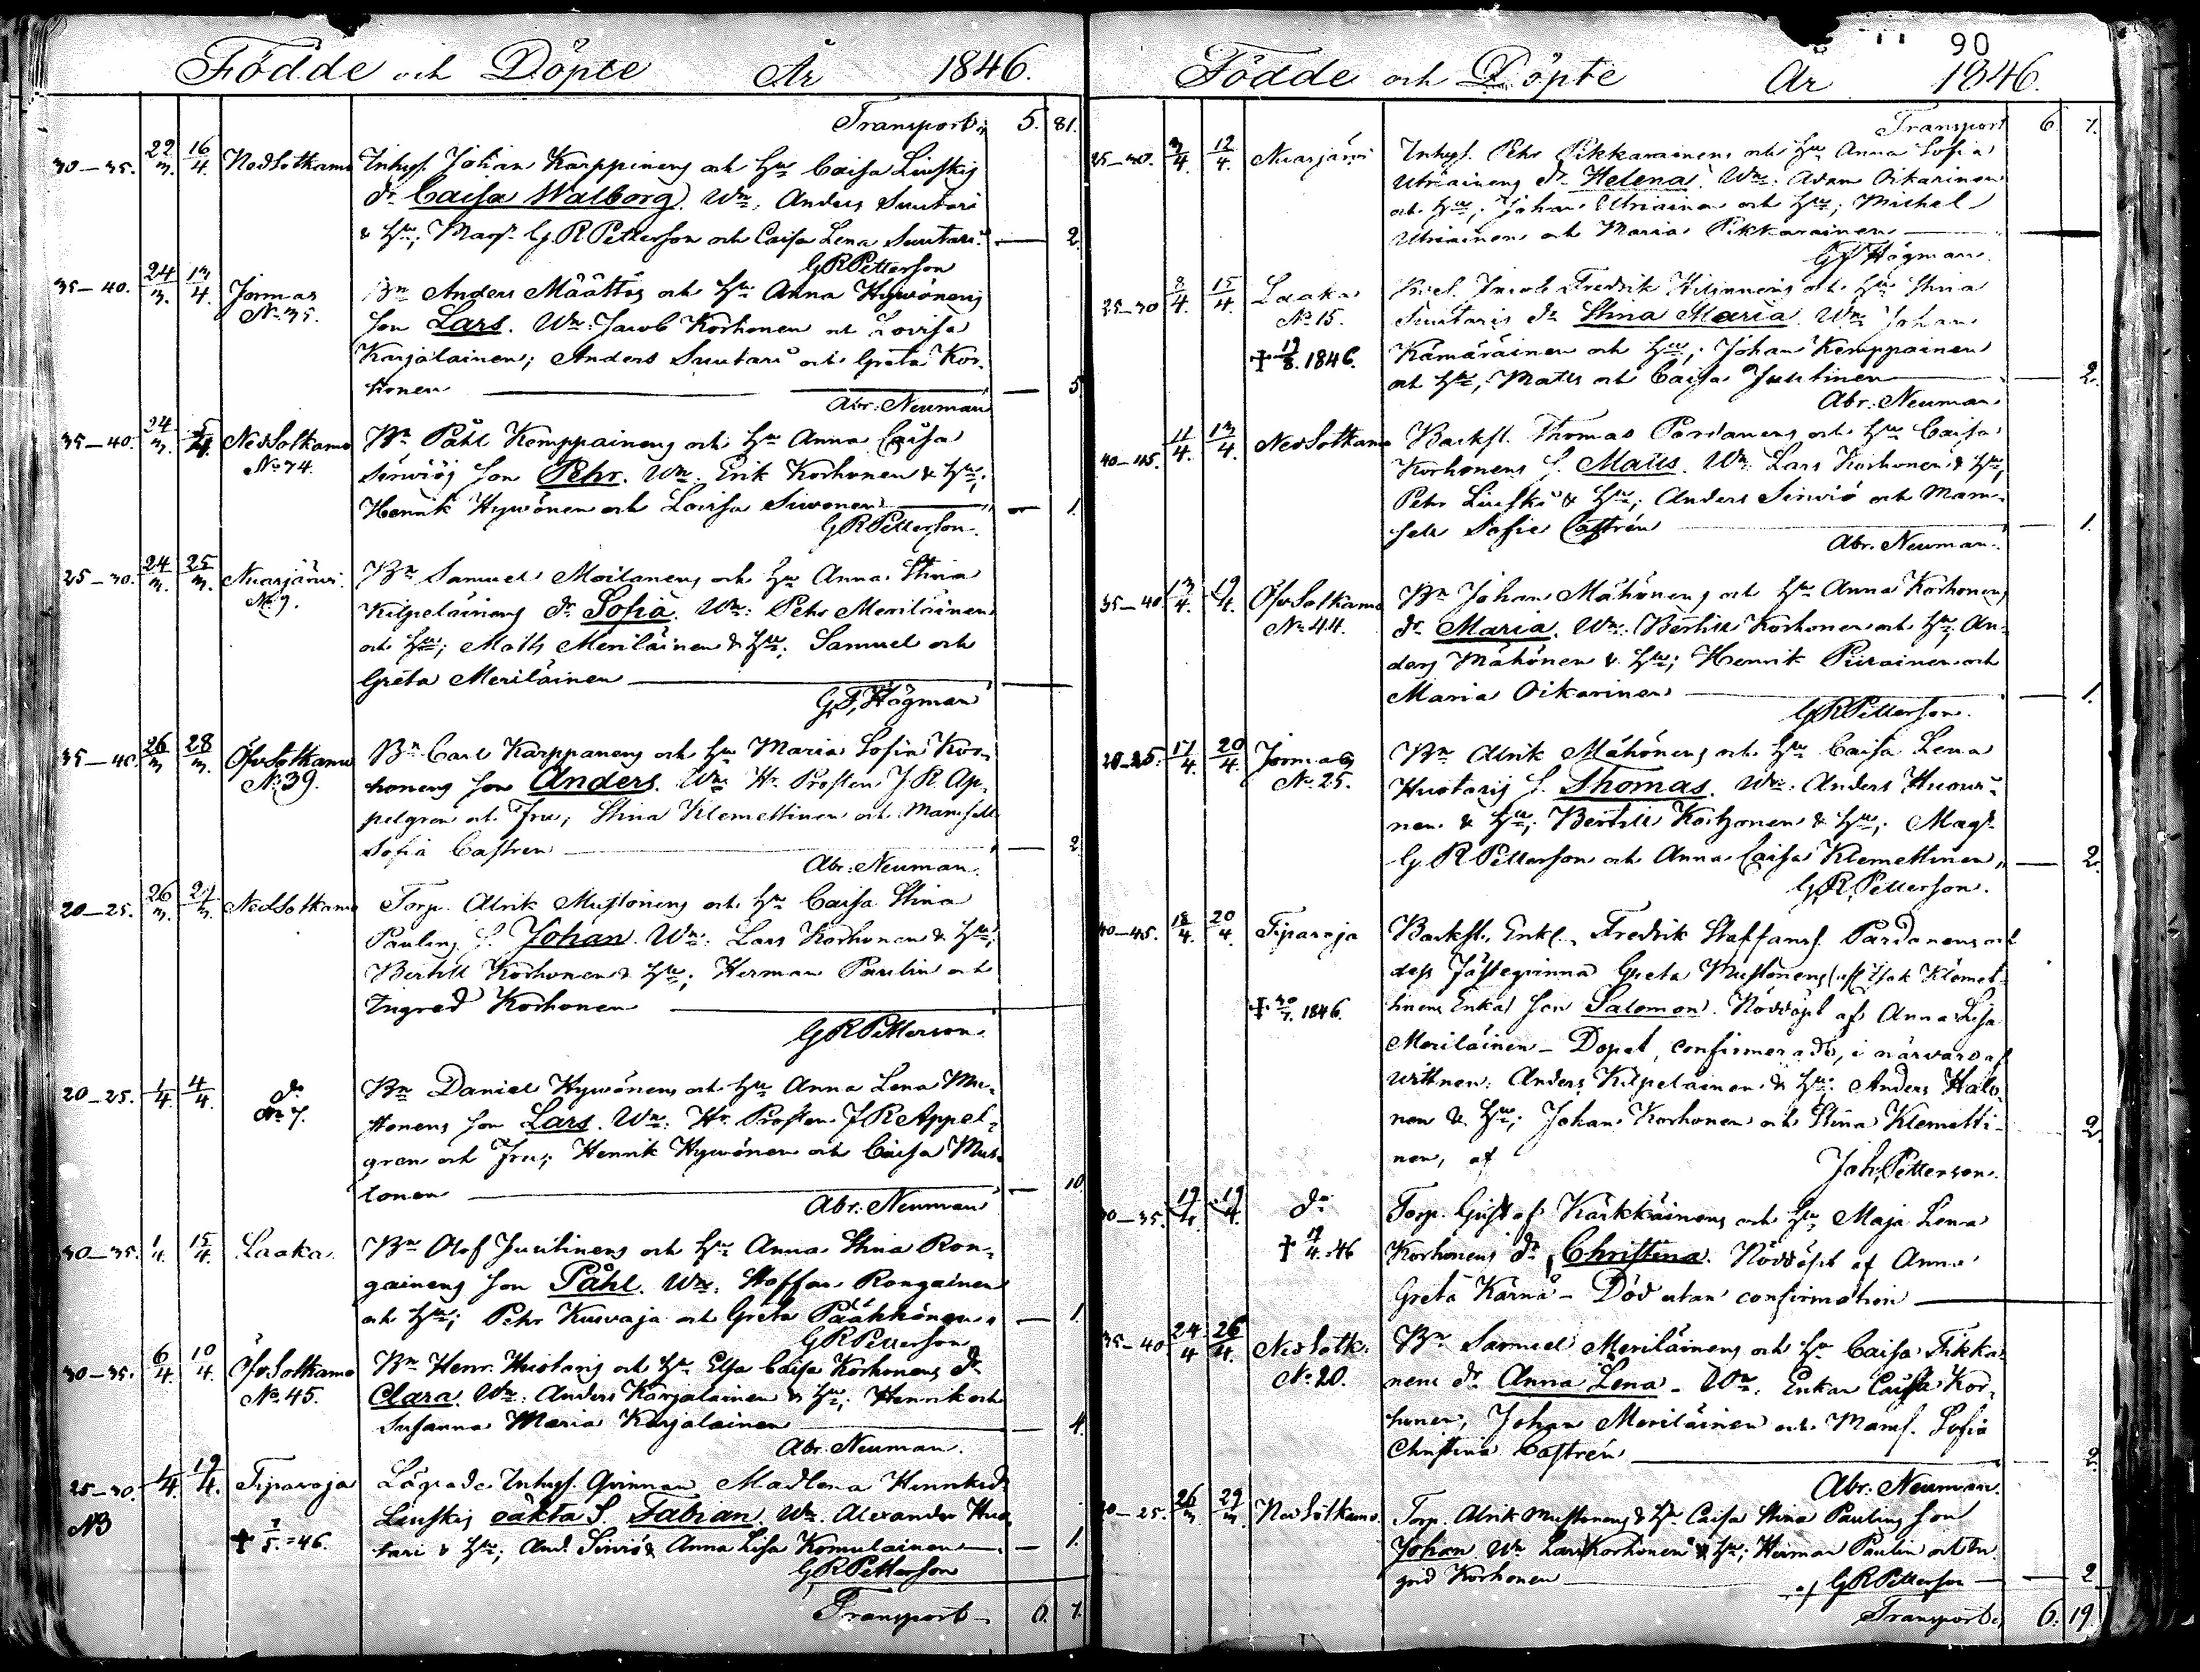 Födde och Döpte År 1846.
Transport 5. 81.
30–35. 22/3. 16/4. NedSotkamo Inhys. Johan Karppinens och Hu Caisa Liuskis
dr Caisa Walborg. Wn: Anders Suutari
& Hu; Magr G R Petterson och Caisa Lena Suutari. — 2.
G R Petterson
35–40. 24/3. 13/4. Jormas Bn Anders Määttäs och Hu Anna Hywönens
No 35. Son Lars. Wn: Jacob Korhonen och Lovisa
Karjalainen; Anders Suutari och Greta Kor-
honen — 5
Abr: Neuman
35–40. 24/3. NedSotkamo Bn Påhl Kemppainens och Hu Anna Caisa
No 74. Sirwiös Son Pehr. Wn: Erik Korhonen & Hu;
Henrik Hywönen och Lovisa Siwonen — 1.
G R Petterson.
25–30. 24/3. 25/3. Nuasjärwi Bn Samuel Moilanens och Hu Anna Stina
No 9. Kilpeläinens dr Sofia. Wn: Pehr Meriläinen
och Hu; Matts Meriläinen & Hu; Samuel och
Greta Meriläinen —
G. F. Högman
35–40. 26/3 28/3. ÖfvSotkamo Bn Carl Karppanens och Hu Maria Sofia Kor-
No 39. honens Son Anders. Wn: Hr Prosten J. R. Ap-
pelgren och Fru; Stina Klemettinen och Mamsell
Sofia Castren — 2
Abr: Neuman.
20–25. 26/3. 29/3. NedSotkamo Torp. Alrik Mustonens och Hu Caisa Stina
Paulins S. Johan. Wn: Lars Korhonen & Hu;
Bertill Korhonen & Hu; Herman Paulin och
Ingred Korhonen —
G R Petterson.
20–25. 1/4. 4/4. do Bn Daniel Hywönens och Hu Anna Lena Mu-
No 7. stonens Son Lars. Wn: Hr Prosten J R Appel-
gren och Fru; Henrik Hywönen och Caisa Mus-
tonen — 10.
Abr: Neuman
30–35. 1/4. 15/4. Laaka. Bn Olof Juutinens och Hu Anna Stina Ron-
gainens Son Påhl. Wn: Staffan Rongainen
och Hu; Pehr Kuwaja och Greta Pääkkönen. — 1.
G R Petterson
30–35. 6/4. 10/4. ÖfvSotkamo Bn Henr. Huotaris och Hu Elsa Caisa Korhonens dr
No 45. Clara. Wn: Anders Karjalainen & Hu; Henrik och
Susanna Maria Karjalainen — 4.
Abr. Neuman.
25–30. 4/4. 19/4. Tiparoja Lägrade Inhys. Qvinnan Madlena Henriksdr
NB Liuskis oäkta S. Fabian. Wn. Alexander Huo-
† 7/5.=46. tari & Hu; And. Sirwiö & Anna Lisa Komulainen — 1.
G R Petterson
Transport 6. 7.
90
Födde och Döpte År 1846.
Transport 6. 7.
25–30. 3/4. 12/4. Nuasjärwi Inhys. Pehr Pikkarainens och Hu Anna Sofia
Utriainens dr Helena. Wn: Adam Oikarinen
och Hu; Johan Utriainen och Hu; Michel
Utriainen och Maria Pikkarainen —
G F Högman.
25–30 8/4. 15/4. Laaka Jacob Fredrik och Hu Stina
No 15. Suutaris dr Stina Maria. Wn Johan
† 19/8. 1846. Kämäräinen och Hu; Johan Kemppainen
och Hu; Matts och Caisa Juutinen — 2.
Abr: Neuman.
40–45. 11/4. 13/4. NedSotkamo Backst. Thomas Pardanens och Hu Caisa
Korhonens S. Matts. Wn: Lars Korhonen & Hu;
Pehr Liuski & Hu; Anders Sirviö och Mam-
sell Sofie Castrén — 1.
Abr. Neuman.
35–40 13/4. 19/4. ÖfvSotkamo Bn Johan Mähönens och Hu Anna Korhonens
No 44. dr Maria. Wn: Bertill Korhonen och Hu; An-
ders Mähönen & Hu; Henrik Piirainen och
Maria Oikarinen — 1.
G R Petterson.
20–25. 17/4. 20/4. Jormas Bn Alrik Mähönens och Hu Caisa Lena
No 25. Huotaris S. Thomas. Wn: Anders
nen & Hu; Bertill Korhonen & Hu; Magr
G R Petterson och Anna Caisa Klemettinen, — 2.
G. R. Petterson.
40–45. 18/4. 20/4 Tiparoja Backst. Enkl. Fredrik Staffans. Pardanens och
dess Fästeqvinna Greta Mustonens (afl Isak Klemet-
† 1846. tinens Enka) Son Salomon. Nöddöpt af Anna Lisa
Meriläinen – Dopet confirmeradt, i närvaro af
Wittnen: Anders Kilpeläinen & Hu; Anders Halo-
nen & Hu; Johan Korhonen och Stina Klemetti- 2.
nen, af Joh. Petterson.
30–35. 19/4. 19/4. do Torp. Gustaf Karkkäinens och Hu Maja Lena
† 19/4. 46 Korhonens dr Christina. Nöddöpt af Anna
Greta Kärnä – Död utan confirmation —
35–40 24/4 26/4. NedSotk. Bn Samuel Meriläinens och Hu Caisa Tikka-
No 20. nens dr Anna Lena – Wn: Enkan Caisa Kor-
honen, Johan Meriläinen och Mams. Sofia
Christina Castrén — 2.
Abr. Neuman.
20–25. 26/3 29/3. NedSotkamo. Torp. Alrik Mustonens & Hu Caisa Stina Paulins Son
Johan Wn Lars Korhonen & Hu; Herman Paulin och In-
gred Korhonen — af G R Petterson — 2
Transport 6. 19.